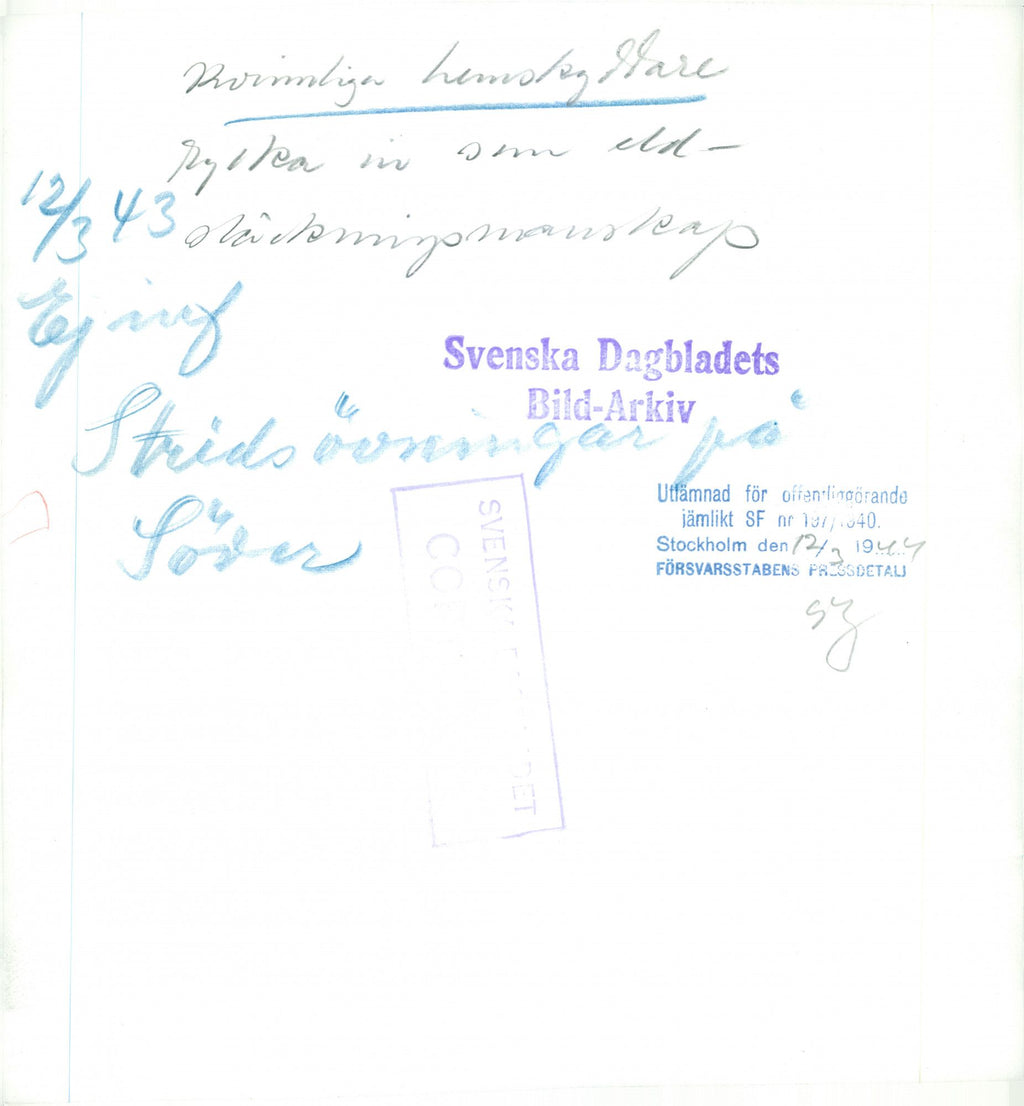 Kvinnliga hemskyddare
rycka in som eld-
släckningsmanskap
12/3 43
Ej inf
Svenska Dagbladets
Bild-Arkiv
Stridsövningar på
Söder
Utlämnad för offentliggörande
jämlikt SF nr 197/1940.
Stockholm den 12/3 1944
FÖRSVARSSTABENS PRESSDETALJ
SVENSKA DAGBLADET